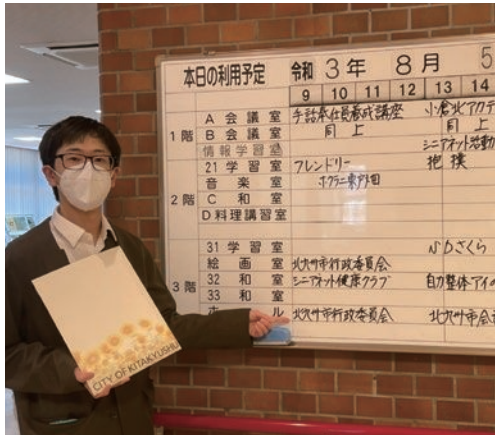 本日の利用予定 令和 3年 8月 5
9 10 11 12 13 14
1階
A会議室 手話奉仕員養成講座 小倉北アクテ
B会議室 同上 同上
情報学習室 シニアネット活動
2階
21学習室 フレンドリー 抱撲
音楽室
C和室
D料理講習室
3階
31学習室 さくら
絵画室 北九州市行政委員会
32和室 シニアネット健康クラブ 自力整体アイの
33和室
ホール 北九州市行政委員会 北九州市会
CITY OF KITAKYUSHU